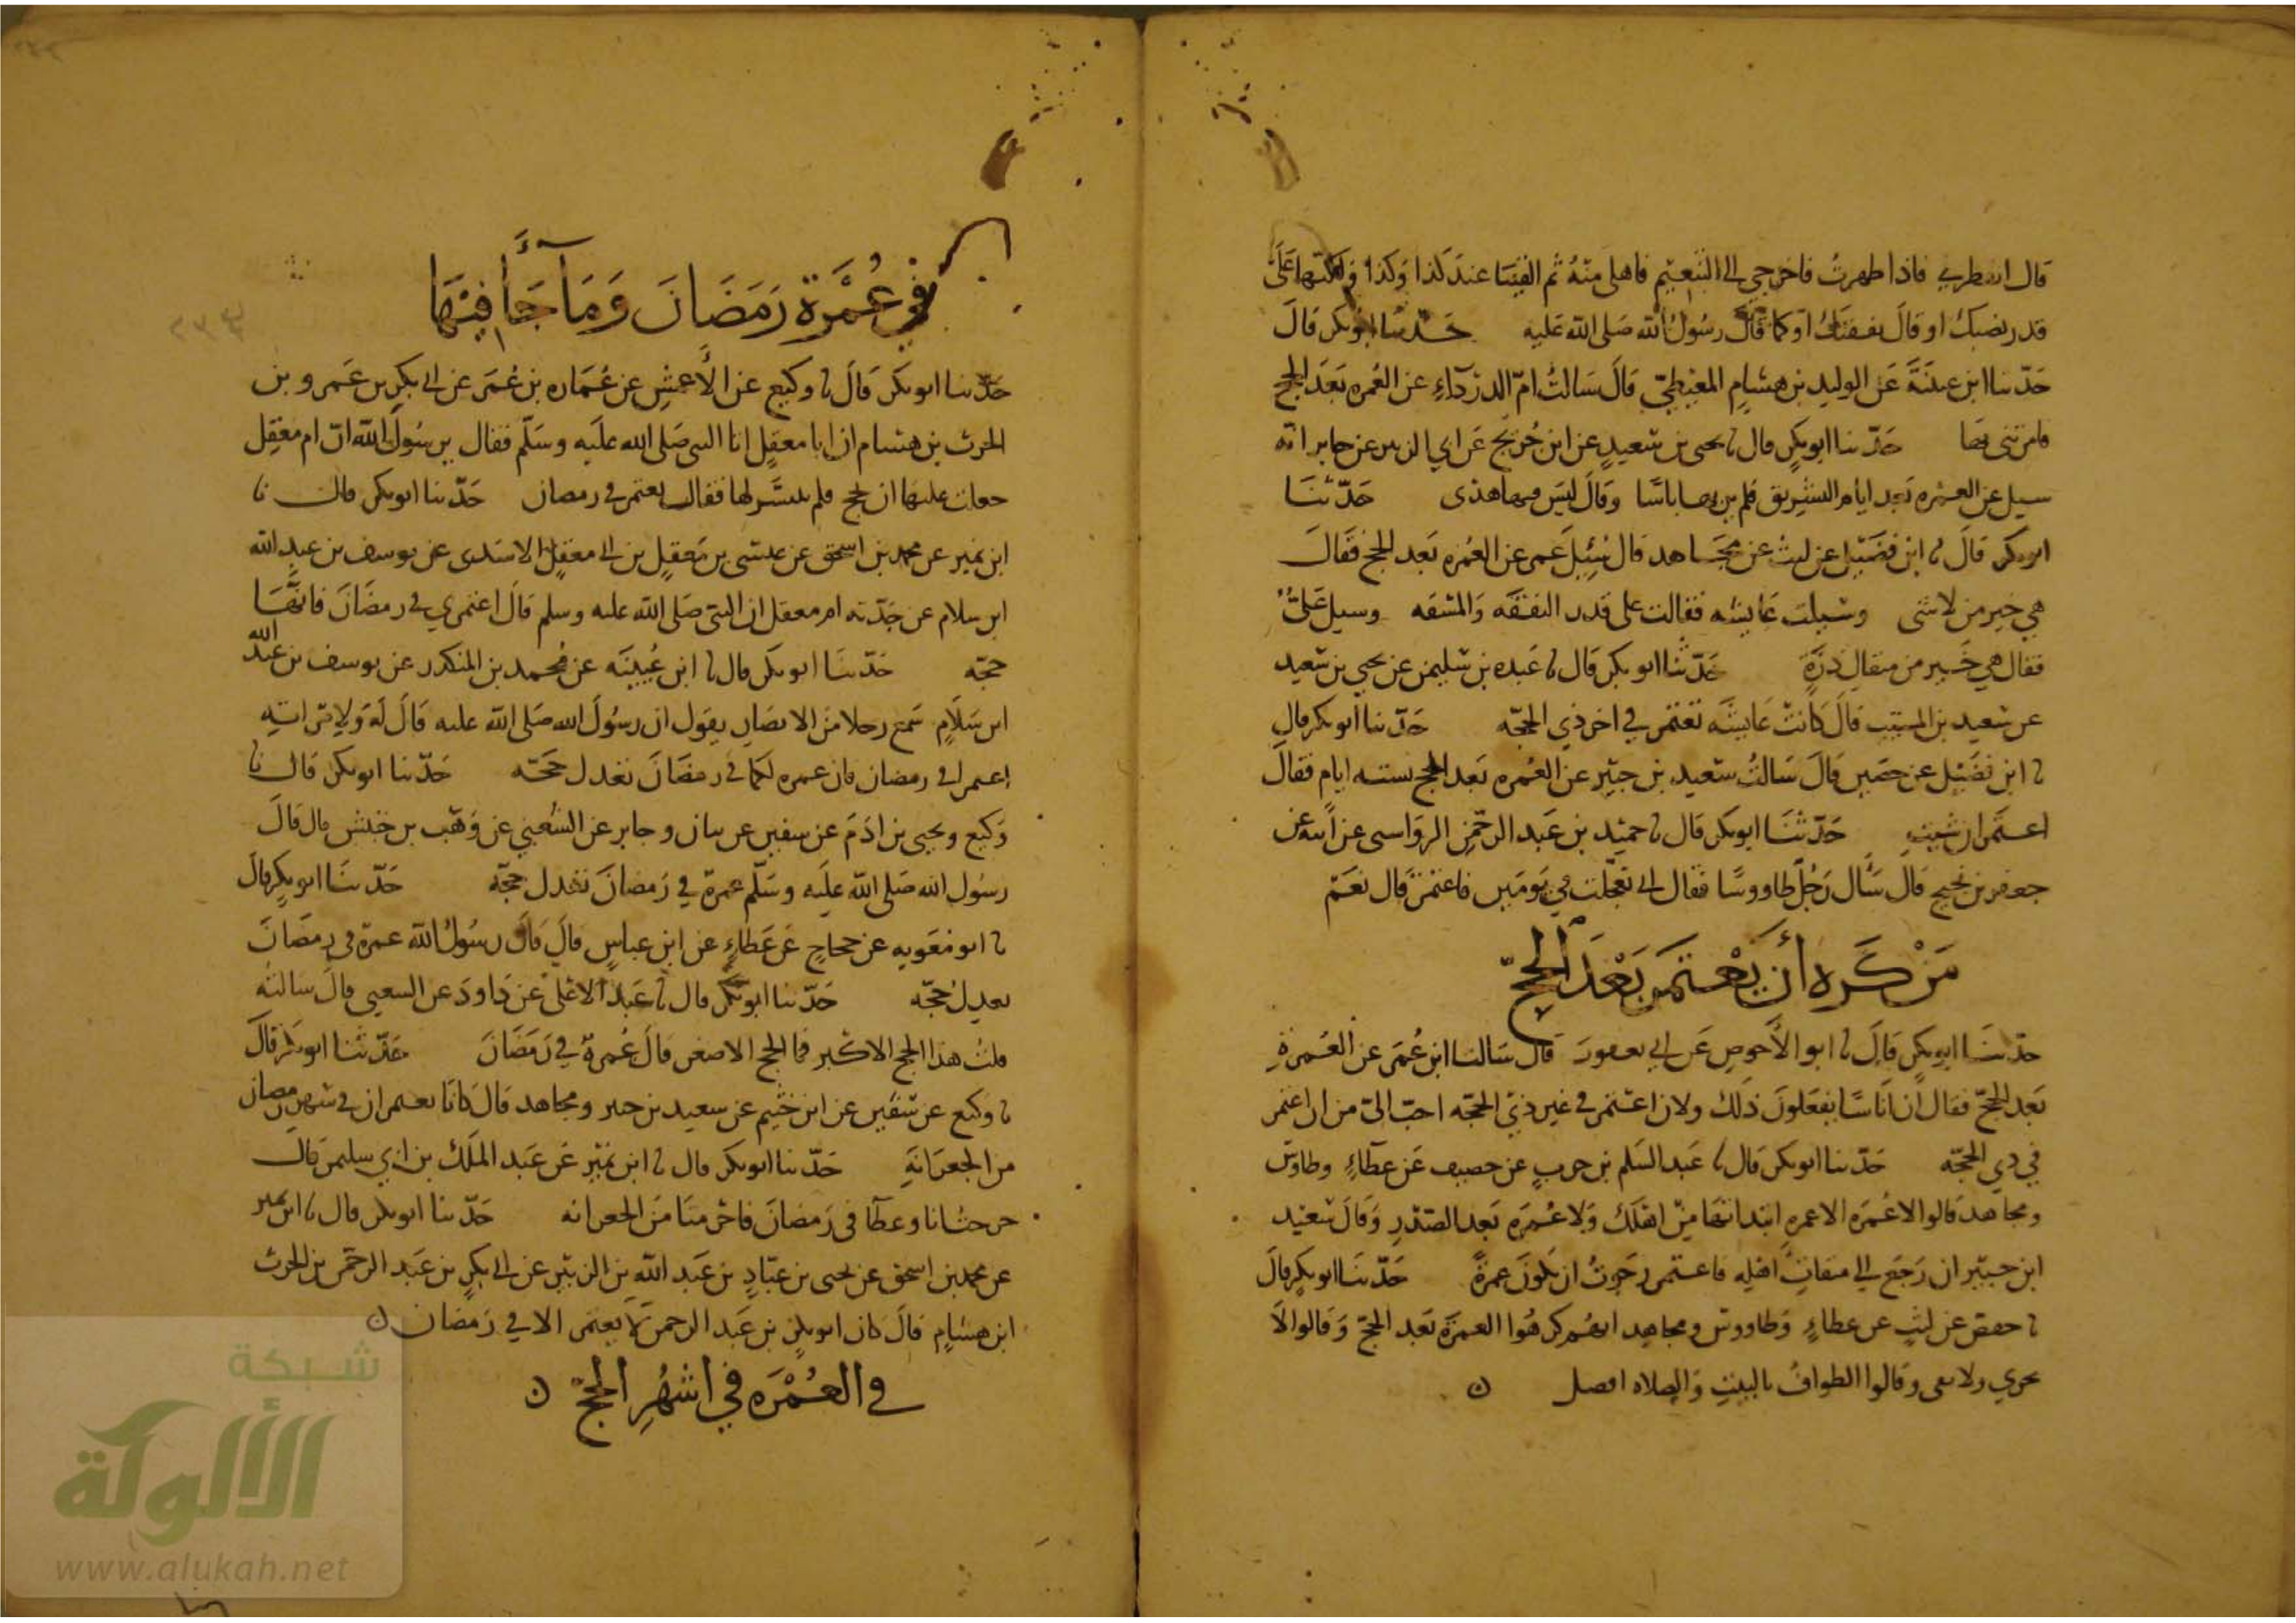 قال انتظري فاذا طهرت فاخرجي الى التنعيم فاهلي منه ثم القينا عند كذا وكذا ولكنها على
قدر نصبك او قال نفقتك او كما قال رسول الله صلى الله عليه حدثنا ابو بكر قال
حدثنا ابن عيينة عن الوليد بن هشام المعيطي قال سالت ام الدرداء عن العمره بعد الحج
فامرتني بها حدثنا ابو بكر قال نا يحيى بن سعيد عن ابن جريج عن ابي الزبير عن جابر انه
سيل عن العمره بعد ايام التشريق فلم ير بها باسا وقال ليس فيها هدى حدثنا
ابو بكر قال نا ابن فضيل عن ليث عن مجاهد قال سئل عمر عن العمره بعد الحج فقال
هي خير من لا شى وسيلت عايشه فقالت على قدر النفقه والمشقه وسيل علي
فقال هي خير من مثقال ذرة حدثنا ابو بكر قال نا عبده بن سليمن عن يحيى بن سعيد
عن سعيد بن المسيب قال كانت عايشه تعتمر في اخر ذي الحجه حدثنا ابو بكر قال
نا ابن فضيل عن حصين قال سالت سعيد بن جبير عن العمره بعد الحج بسته ايام فقال
اعتمر ان شيت حدثنا ابو بكر قال نا حميد بن عبد الرحمن الرواسى عن ابيه عن
جعفر بن نجيح قال سال رجل طاووسا فقال اني تعجلت في يومين فاعتمر قال نعم
من كره أن يعتمر بعد الحج
حدثنا ابو بكر قال نا ابو الأحوص عن ابي يعفور قال سالنا ابن عمر عن العمرة
بعد الحج فقال ان اناسا يفعلون ذلك ولان اعتمر في غير ذي الحجه احب الي من ان اعتمر
في ذي الحجه حدثنا ابو بكر قال نا عبد السلم بن حرب عن خصيف عن عطاء وطاوس
ومجاهد قالوا لا عمره الا عمره ابتداتها من اهلك ولا عمره بعد الصدر وقال سعيد
ابن جبير ان رجع الى ميقات اهله فاعتمر رجوت ان تكون عمرة حدثنا ابو بكر قال
نا حفص عن ليث عن عطاء وطاووس ومجاهد انهم كرهوا العمرة بعد الحج وقالوا لا
تجزي ولا تفى وقالوا الطواف بالبيت والصلاه افضل ن
في عمرة رمضان وما جاء فيها
حدثنا ابو بكر قال نا وكيع عن الأعمش عن عماره بن عمر عن ابي بكر بن عمرو بن
الحرث بن هشام ان ابا معقل اتا النبي صلى الله عليه وسلم فقال يرسول الله ان ام معقل
جعلت عليها ان تحج فلم يتيسر لها فقال تعتمر في رمضان حدثنا ابو بكر قال نا
ابن نمير عن محمد بن اسحق عن عيسى بن معقل بن ابي معقل الاسدى عن يوسف بن عبد الله
ابن سلام عن جدته ام معقل ان النبي صلى الله عليه وسلم قال اعتمري في رمضان فانها
حجه حدثنا ابو بكر قال نا ابن عيينه عن محمد بن المنكدر عن يوسف بن عبد الله
ابن سلام سمع رجلا من الانصار يقول ان رسول الله صلى الله عليه قال له ولامراته
اعتمرا في رمضان فان عمره لكما في رمضان تعدل حجه حدثنا ابو بكر قال نا
وكيع ويحيى بن ادم عن سفين عن بيان وجابر عن الشعبي عن وهب بن خنبش قال قال
رسول الله صلى الله عليه وسلم عمرة في رمضان تعدل حجه حدثنا ابو بكر قال
نا ابو معويه عن حجاج عن عطاء عن ابن عباس قال قال رسول الله عمرة في رمضان
تعدل حجه حدثنا ابو بكر قال نا عبد الاعلى عن داود عن الشعبي قال سالته
قلت هذا الحج الاكبر فما الحج الاصغر قال عمرة في رمضان حدثنا ابو بكر قال
نا وكيع عن سفين عن ابن خثيم عن سعيد بن جبير ومجاهد قال كانا يعتمران في شهر رمضان
من الجعرانة حدثنا ابو بكر قال نا ابن نمير عن عبد الملك بن ابي سليمن قال
خرجت انا وعطا في رمضان فاحرمنا من الجعرانه حدثنا ابو بكر قال نا ابن نمير
عن محمد بن اسحق عن يحيى بن عباد بن عبد الله بن الزبير عن ابي بكر بن عبد الرحمن بن الحرث
ابن هشام قال كان ابو بكر بن عبد الرحمن لا يعتمر الا في رمضان ن
في العمره في اشهر الحج ن
شبكة
الألوكة
www.alukah.net